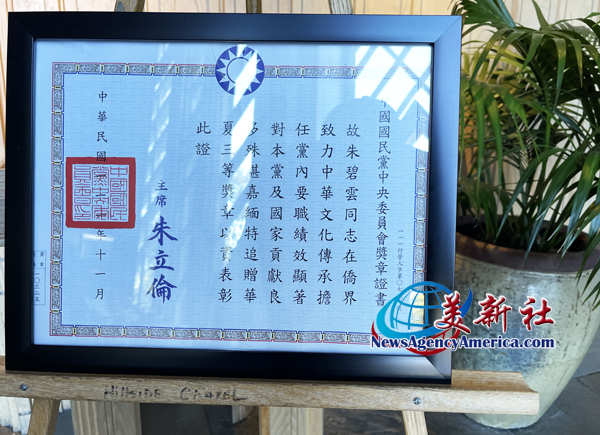 中國國民黨中央委員會獎章證書
故朱碧雲同志在僑界
致力中華文化傳承擔
任黨內要職績效顯著
對本黨及國家貢獻良
多殊堪嘉緬特追贈華
夏三等獎章以資表彰
此證
主席 朱立倫
中華民國 年十一月
美新社
NewsAgencyAmerica.com
HILLSIDE CHAPEL